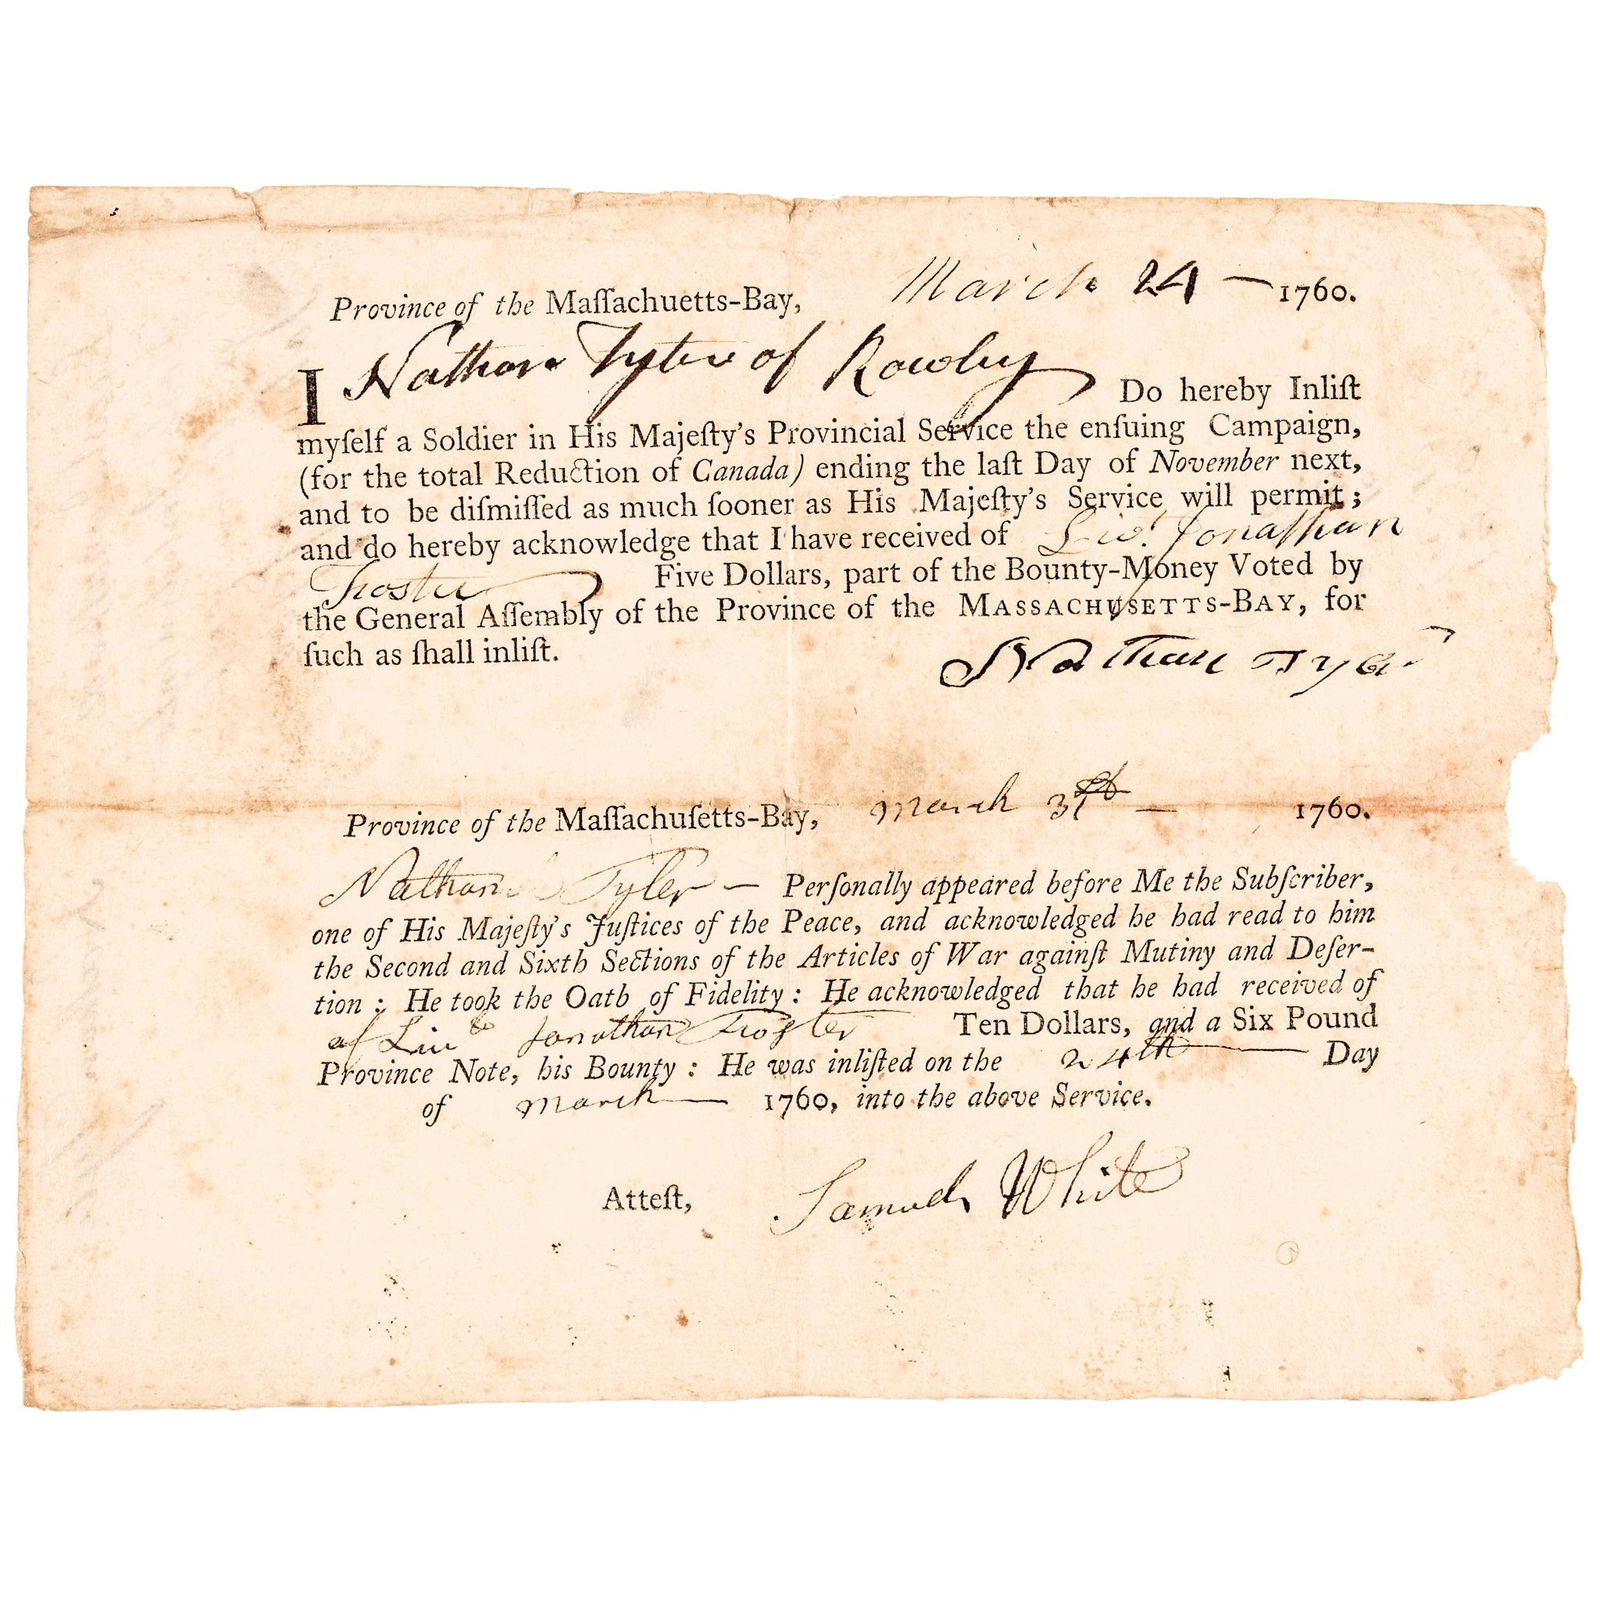 Province of the Maſſachuetts-Bay, March 24 — 1760.
I Nathan Tyler of Rowley Do hereby Inliſt
myſelf a Soldier in His Majeſty's Provincial Service the enſuing Campaign,
(for the total Reduction of Canada) ending the laſt Day of November next,
and to be diſmiſſed as much ſooner as His Majeſty's Service will permit;
and do hereby acknowledge that I have received of Jonathan
Froster Five Dollars, part of the Bounty-Money Voted by
the General Aſſembly of the Province of the MASSACHUSETTS-BAY, for
ſuch as ſhall inliſt.
Nathan Tyler
Province of the Maſſachuſetts-Bay, March 31st — 1760.
Nathan Tyler — Perſonally appeared before Me the Subſcriber,
one of His Majeſty's Juſtices of the Peace, and acknowledged he had read to him
the Second and Sixth Sections of the Articles of War againſt Mutiny and Deſer-
tion : He took the Oath of Fidelity : He acknowledged that he had received of
of Jonathan Froster Ten Dollars, and a Six Pound
Province Note, his Bounty : He was inliſted on the 24th — Day
of March — 1760, into the above Service.
Atteſt, Samuel White